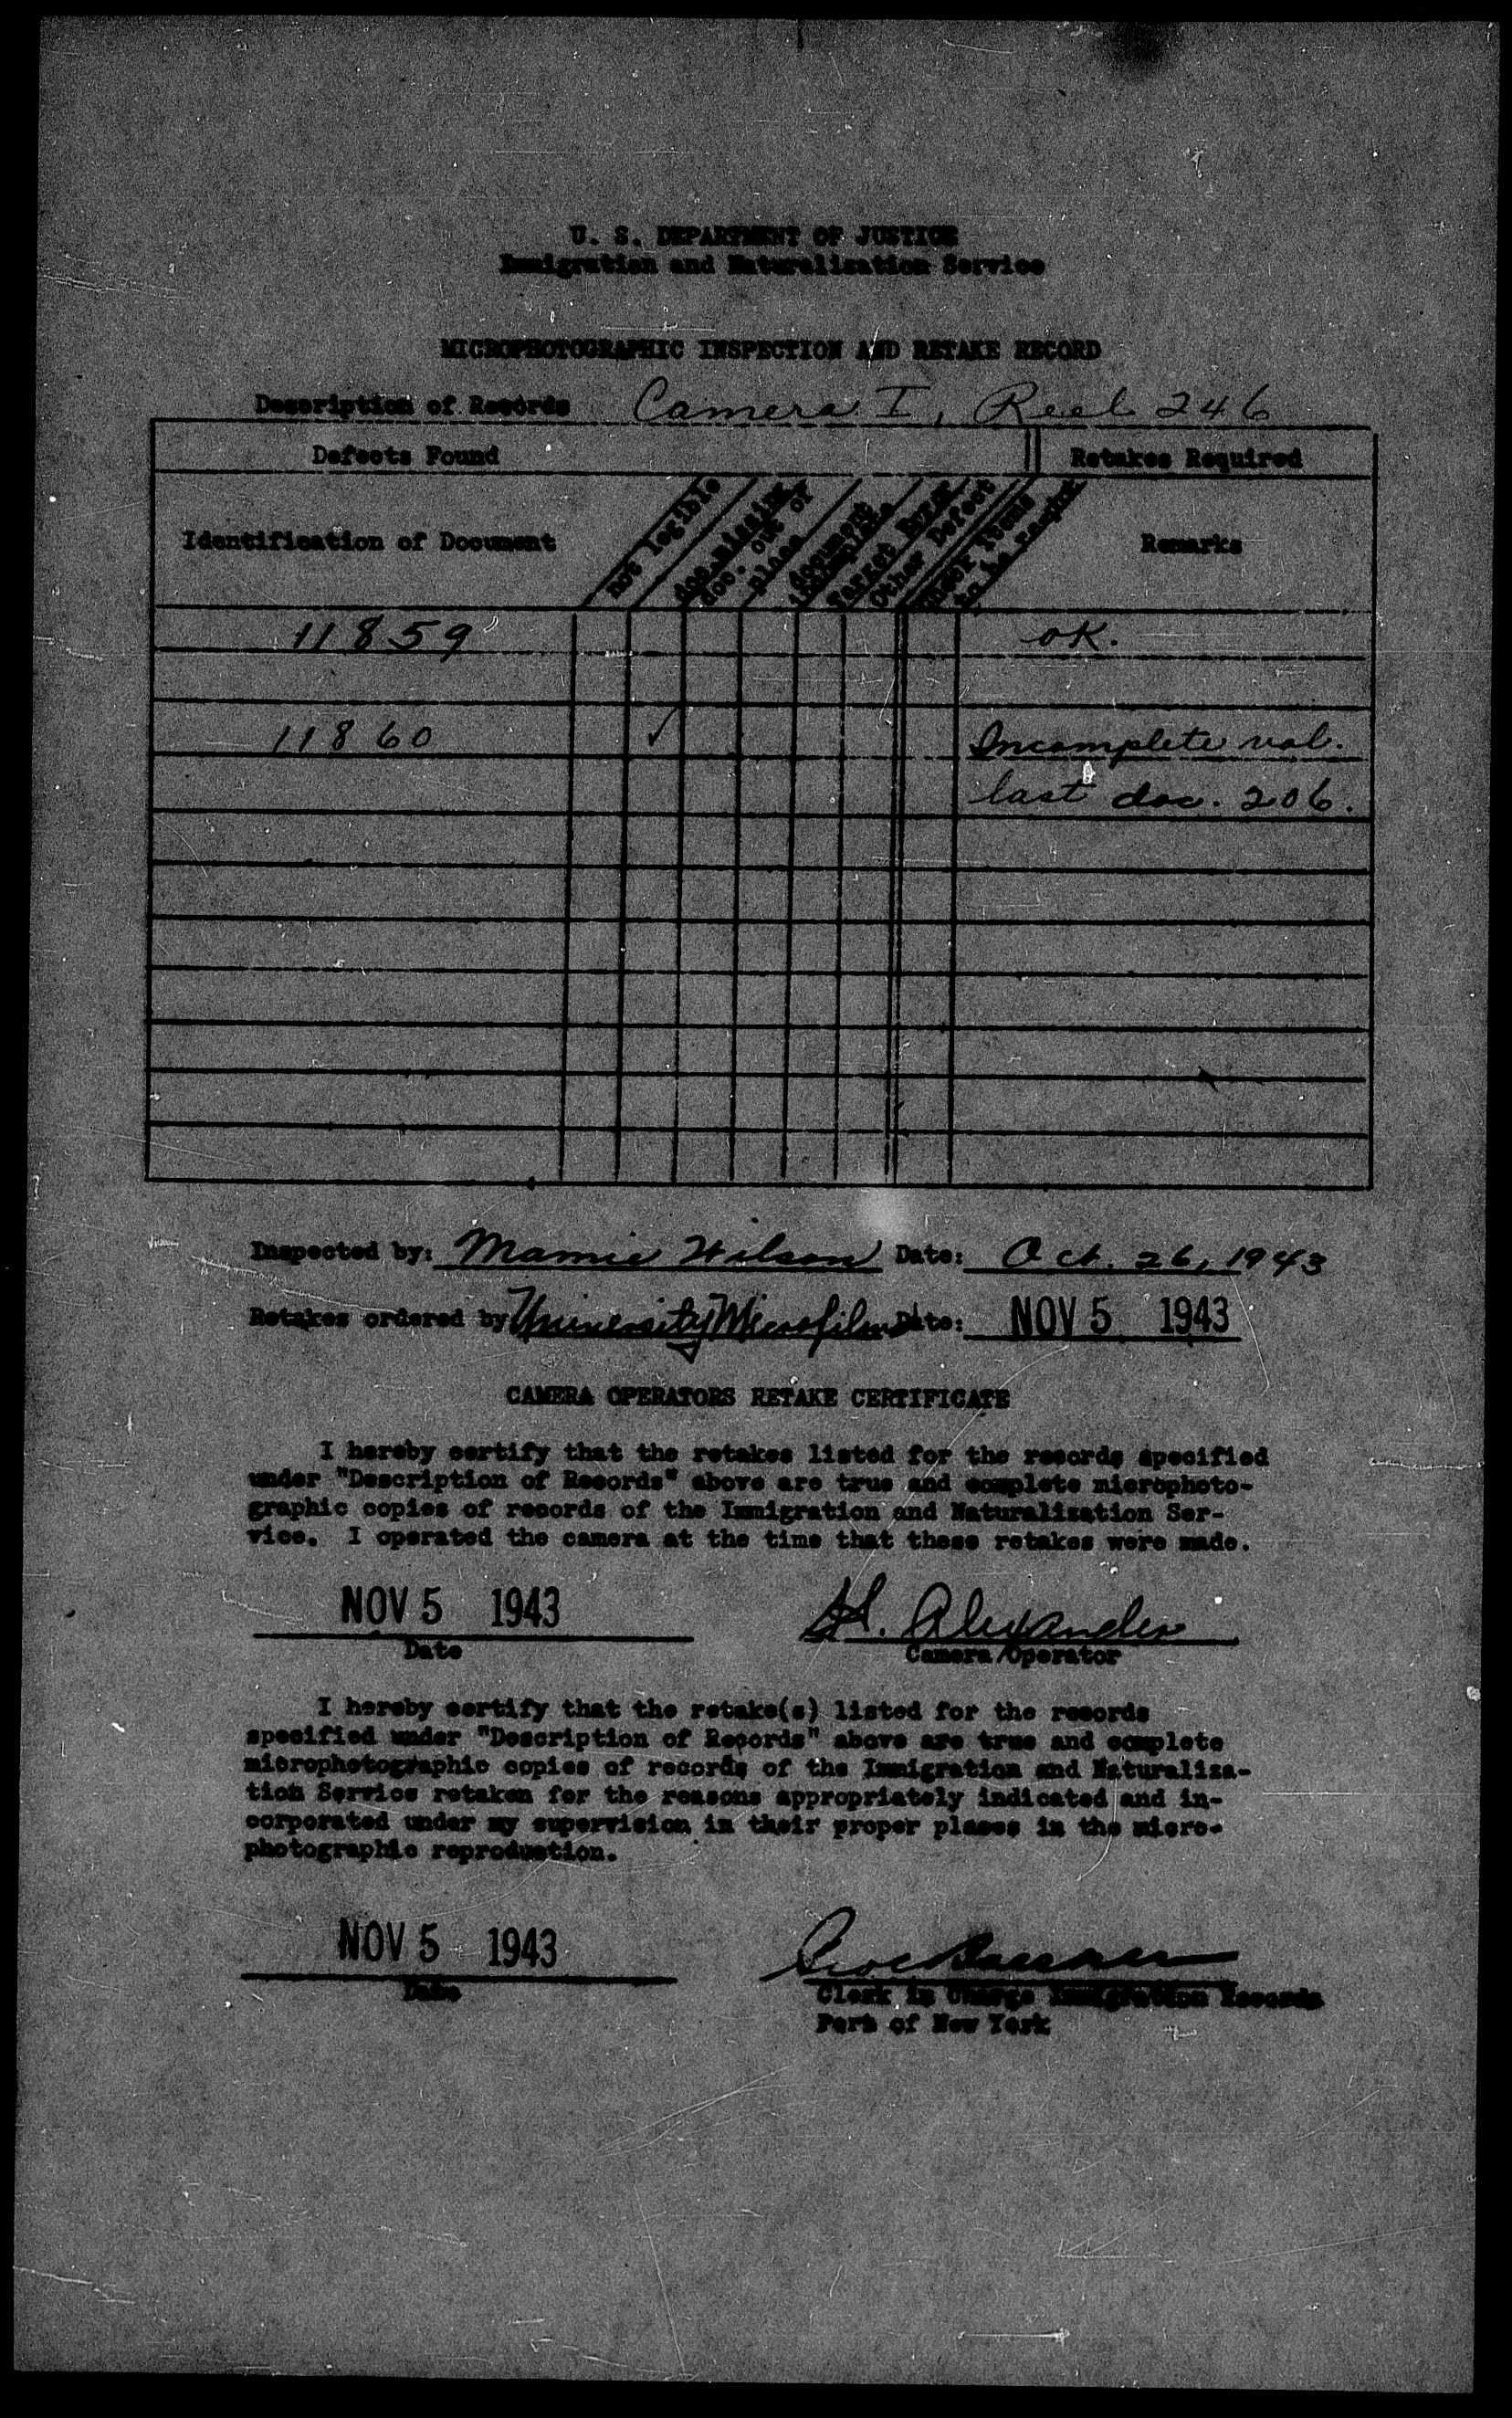 U. S. DEPARTMENT OF JUSTICE
Immigration and Naturalization Service
MICROPHOTOGRAPHIC INSPECTION AND RETAKE RECORD
Description of Records Camera I, Reel 246
Defects Found Retakes Required
Identification of Document
not legible
doc. missing
doc. out of
place
document
incomplete
Target Error
Other Defect
Check Items
to be
Remarks
11859 OK.
11860 ✓ Incomplete vol.
last doc. 206.
Inspected by: Mamie Wilson Date: Oct. 26, 1943
Retakes ordered by University Microfilms Date: NOV 5 1943
CAMERA OPERATORS RETAKE CERTIFICATE
I hereby certify that the retakes listed for the records specified
under "Description of Records" above are true and complete microphoto-
graphic copies of records of the Immigration and Naturalization Ser-
vice. I operated the camera at the time that these retakes were made.
NOV 5 1943 H. Alexander
Date Camera Operator
I hereby certify that the retake(s) listed for the records
specified under "Description of Records" above are true and complete
microphotographic copies of records of the Immigration and Naturaliza-
tion Service retaken for the reasons appropriately indicated and in-
corporated under my supervision in their proper places in the micro-
photographic reproduction.
NOV 5 1943
Date Clerk in Charge Immigration Records
Port of New York